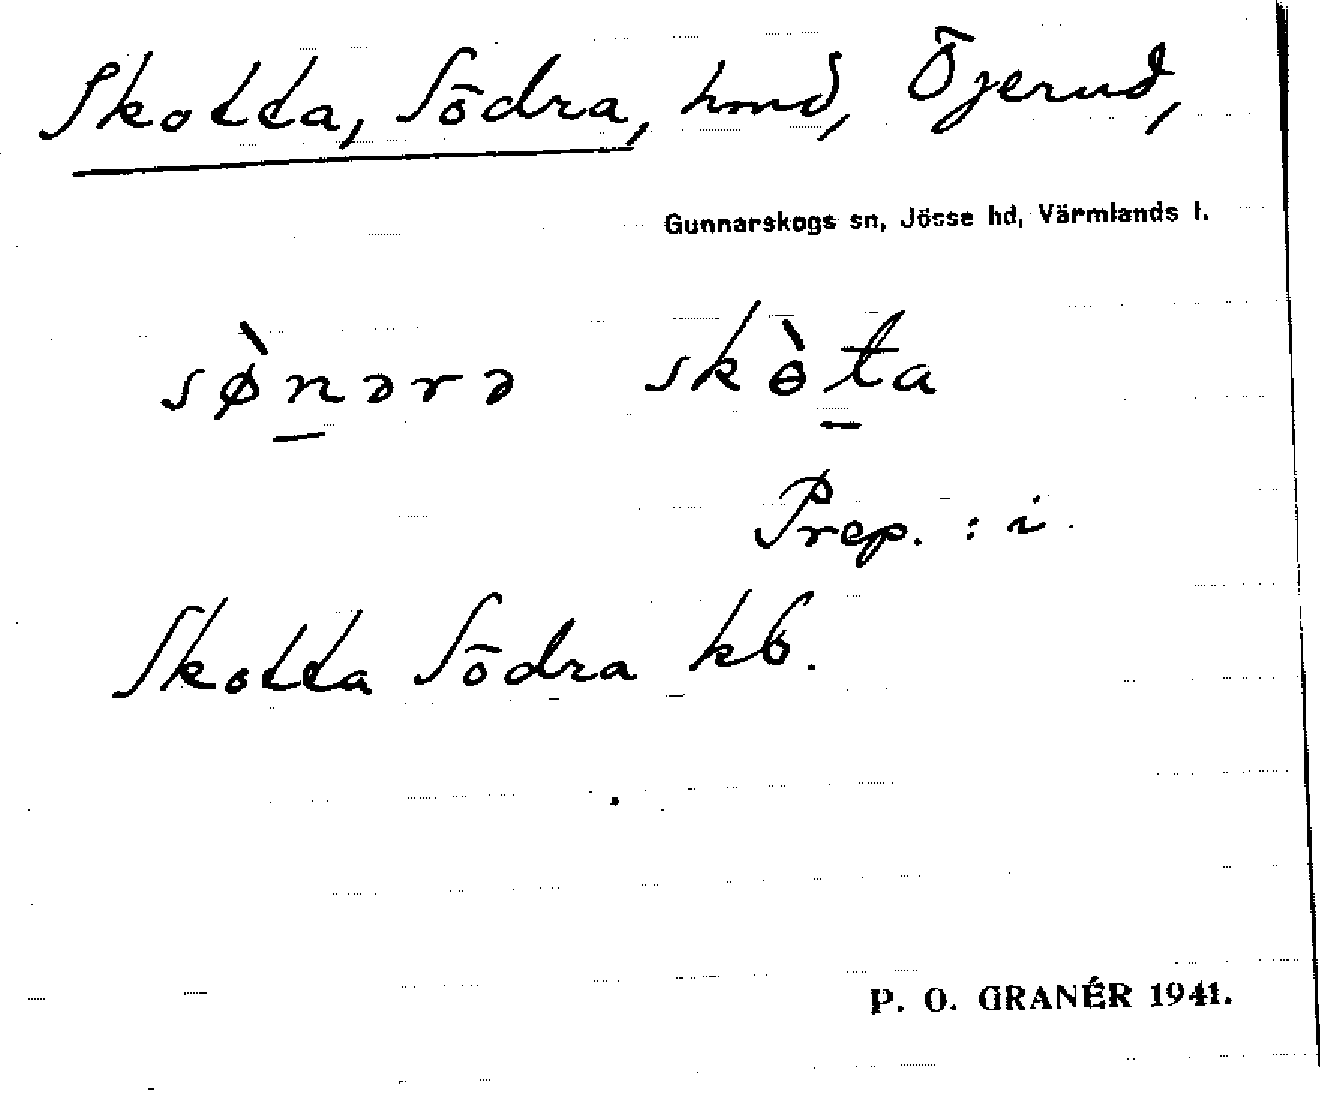 Skotta, Södra, hmd, Öjerud,
Gunnarskogs sn, Jösse hd, Värmlands l.
sø̀nərə skɵ̀ta
Prep. : i.
Skotta Södra kb.
P. O. GRANÉR 1941.